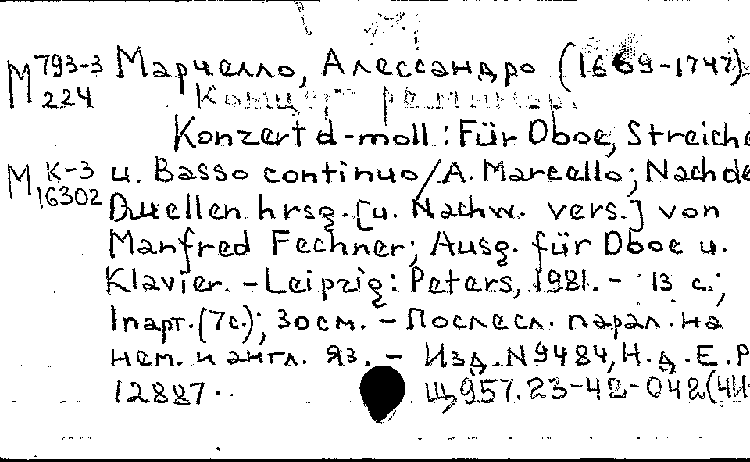 М 793-3 Марчелло, Алессандро (1669-1747)
224 Концерт ре минор.
Konzert d-moll : Für Oboe, Streiche
М К-3 u. Basso continuo/A. Marcello; Nach de
16302 Quellen hrsg. [u. Nachw. vers.] von
Manfred Fechner; Ausg. für Oboe u.
Klavier. - Leipzig: Peters, 1981. - 13 с.;
1парт.(7с.); 30см. - Послесл. парал. на
нем. и англ. яз. - Изд. N9484, Н. д. Е. Р
12887.
Щ957.23-42-042(4И